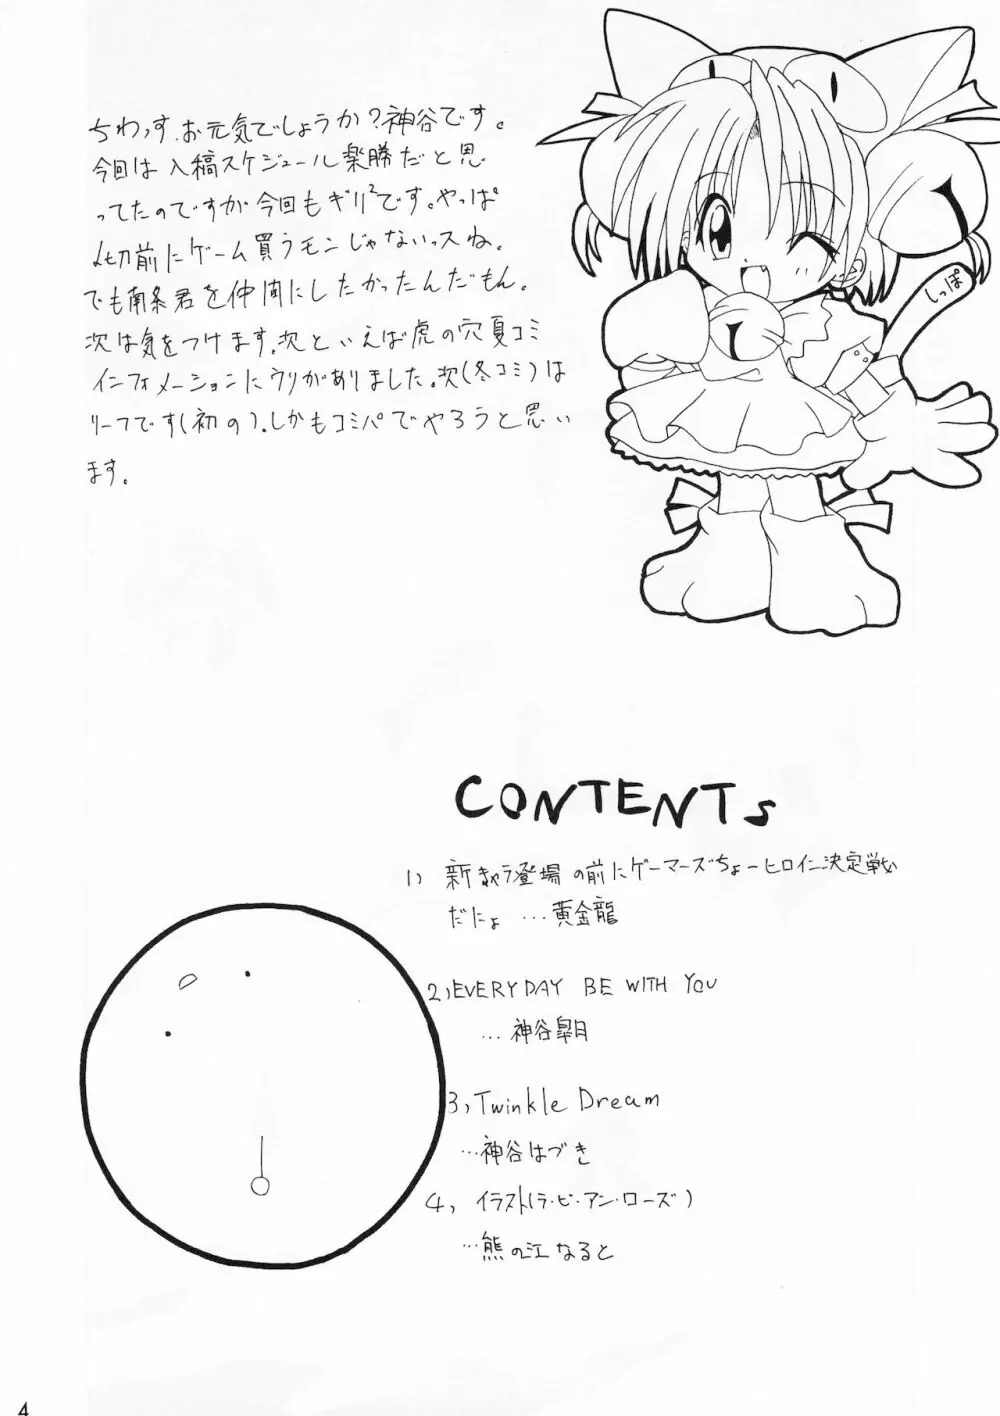 ちわっす、お元気でしょうか?神谷です。
今回は入稿スケジュール楽勝だと思
ってたのですが今回もギリ²です。やっぱ
〆切前にゲーム買うモンじゃないっスね。
でも南条君を仲間にしたかったんだもん。
次は気をつけます。次といえば虎の穴夏コミ
インフォメーションにウリがありました。次(冬コミ)は
リーフです(初の)。しかもコミパでやろうと思い
ます。
しっぽ
CONTENTs
1) 新きゃラ登場の前にゲーマーズちょーヒロイン決定戦
だにょ …黄金龍
2) EVERYDAY BE WITH YOU
…神谷皐月
3, Twinkle Dream
…神谷はづき
4, イラスト(ラ・ビ・アン・ローズ)
…熊の江なると
4